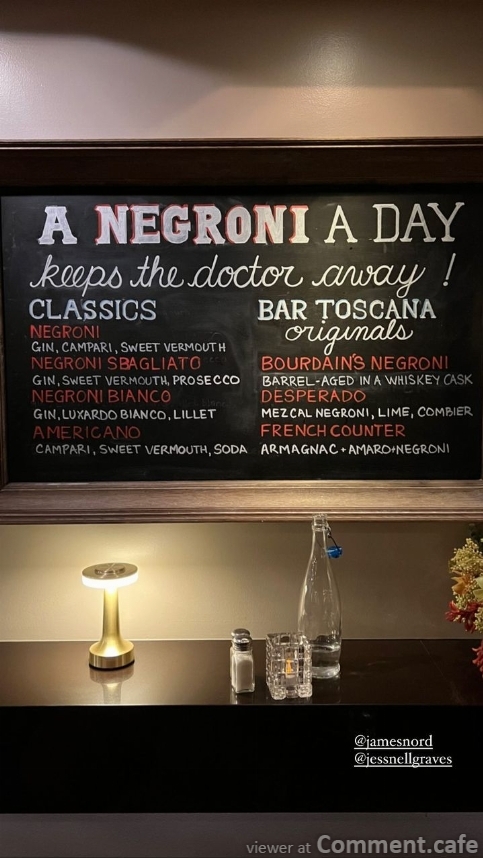 A NEGRONI A DAY
keeps the doctor away !
CLASSICS
NEGRONI
GIN, CAMPARI, SWEET VERMOUTH
NEGRONI SBAGLIATO
GIN, SWEET VERMOUTH, PROSECCO
NEGRONI BIANCO
GIN, LUXARDO BIANCO, LILLET
AMERICANO
CAMPARI, SWEET VERMOUTH, SODA
BAR TOSCANA
originals
BOURDAIN'S NEGRONI
BARREL-AGED IN A WHISKEY CASK
DESPERADO
MEZCAL NEGRONI, LIME, COMBIER
FRENCH COUNTER
ARMAGNAC + AMARO + NEGRONI
@jamesnord
@jessnellgraves
viewer at Comment.cafe